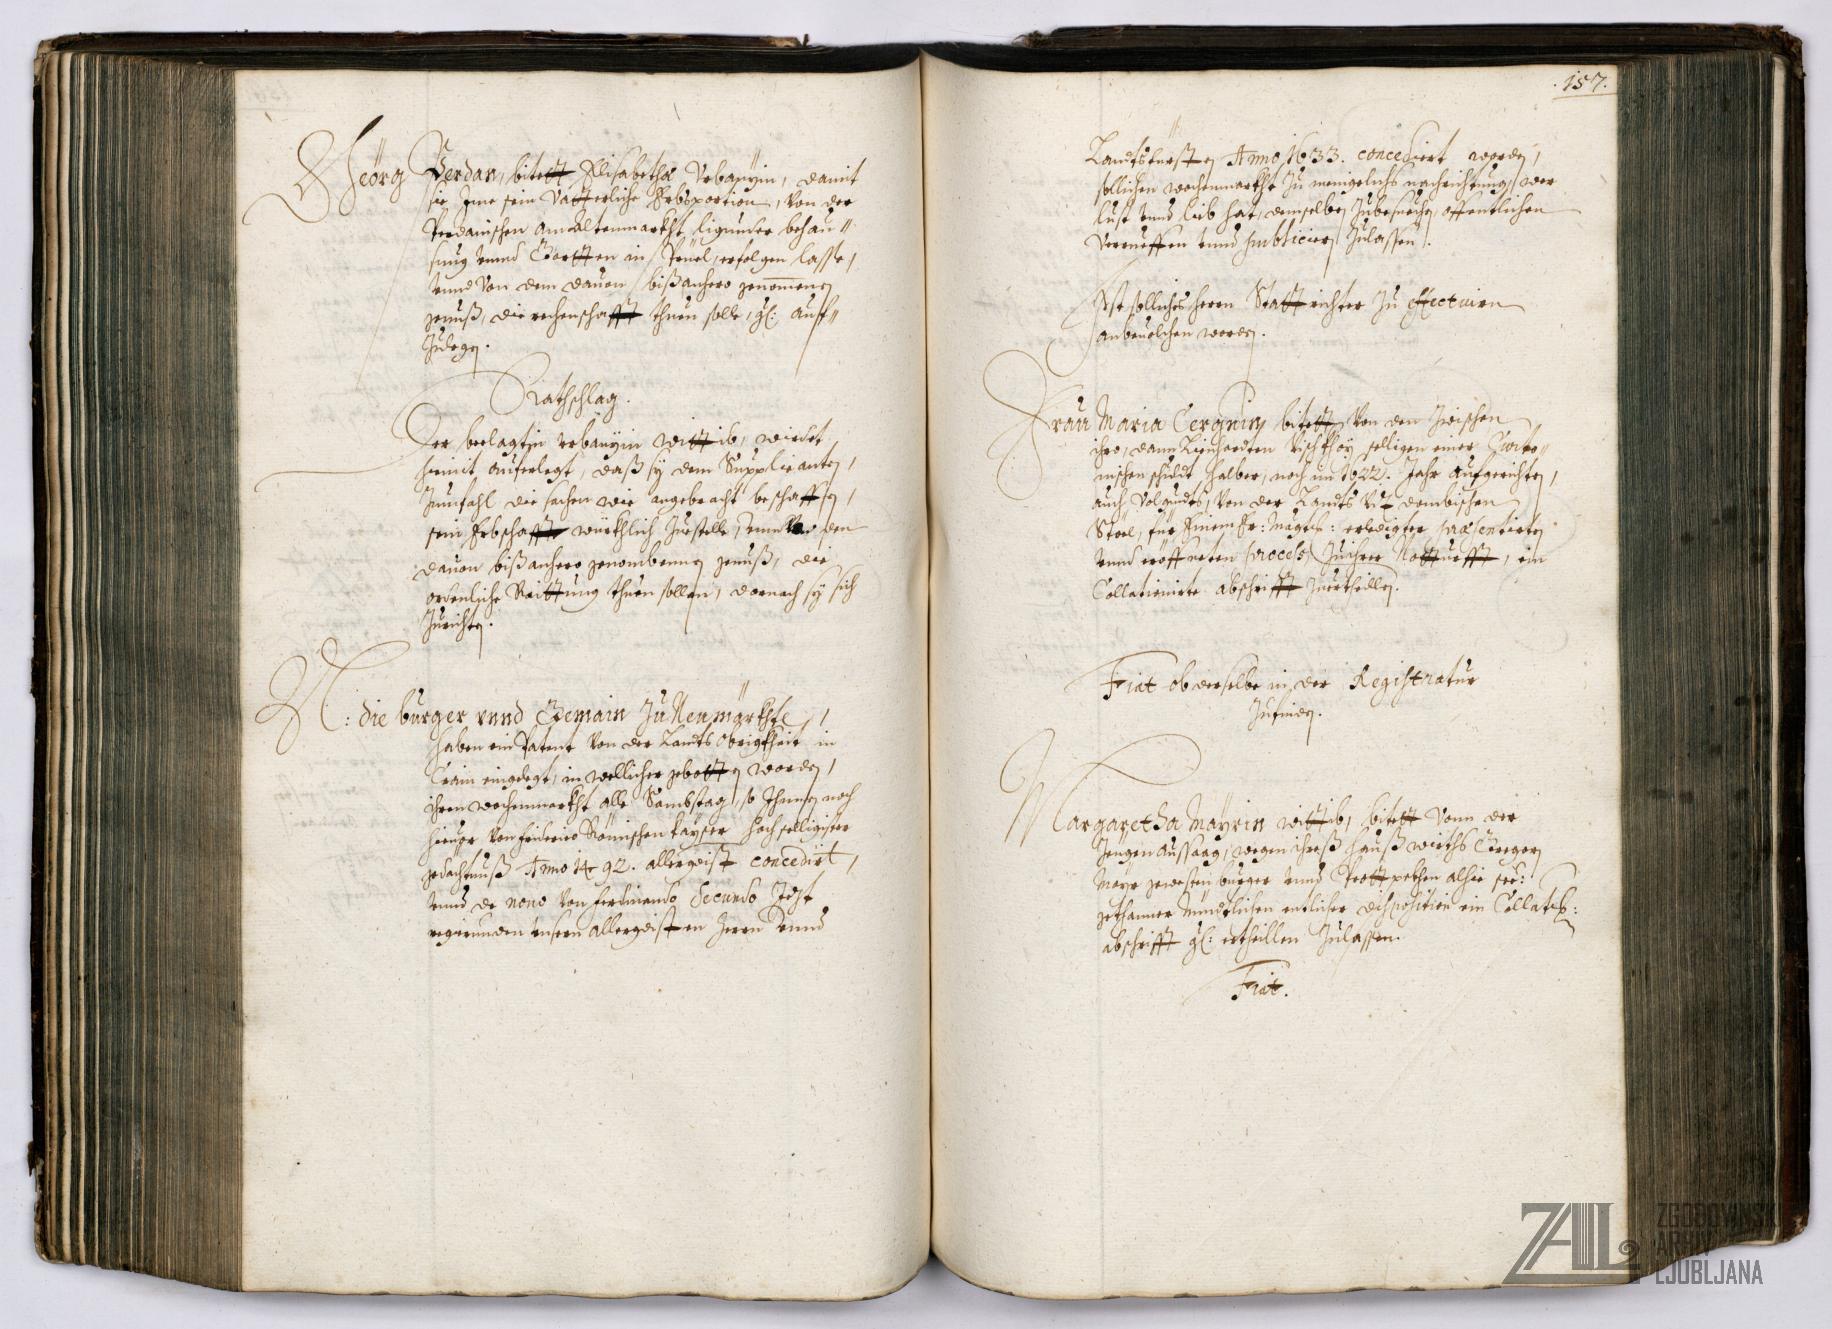 Geörg Perdan, bitett Elisabetha Vrbanyin, damit
sie Ime sein Vatterliche Erbsportion, von der
Perdanischen am Altenmarkht ligunder behau=
sung vnnd Gartten in Prüel, erfolgen lasse,
vnnd von dem dauon bißanhero genomenen
genuß, die rechenschafft thuen solle, gl: auf=
Zulegen.
Rathschlag.
Der beclagtin vrbanyin wittib, wirdet
hiemit auferlegt, daß sy dem Supplicanten,
Zumfahl die sachen wie angebracht beschaffen,
sein Erbschafft würkhlich Zuestelle, vnnd von den
dauon bißanhero genombennen genuß, die
ordenliche Raittung thuen sollen, darnach sy sich
Zurichten.
N: die burger vnnd Gemain Zu Neumärkhtl,
haben ein Patent von der Landts Obrigkheit in
Crain eingelegt, in wellicher gebotten worden,
ihren wochenmarkht alle Sambstag, so Ihnnen noch
hieuor von Friderico Römischen Kayser hochselligister
gedächtnuß Anno 1492. allergdist concedirt,
vnnd de nouo von Ferdinando Secundo Jezt
regierunden vnsern allergdisten Herrn vnnd
157.
Landtsfürsten Anno 1633. concediert worden,
sollichen wochenmarkht Zu meniglichs nachrichtung, wer
lust vnnd lieb hat, denselben Zubesuechen, offentlichen
Verrueffen vnnd publiciern Zulassen.
Ist solliches Herrn Stattrichter Zu effectuirn
anbeuolchen worden.
Frau Maria Cergnin, bitett von den Zwischen
ihro, dann Lienhardten selligen einer
schuldt halber, noch im 1622. Jahr aufgerichten,
auch volgundts, von der Landts
für Einem Er: Magtr: erledigter praesentierten
vnnd eröffneten process, Zu ihrer Notturfft, ein
Collationirte abschrifft Zuerthaillen.
Fiat ob derselbe in der Registratur
Zufinden.
Margaretha Mayrin wittib, bitett vonn der
Zeugen aussaag, wegen ihreß haußwirths Gregorn
Mayr gewesten burger vnnd alhie see:
gethanner Mündtlichen entlicher disposition ein Collatr:
abschrifft gl: ertheillen Zulassen.
Fiat.
ZAL
ZGODOVINSKI
ARHIV
LJUBLJANA